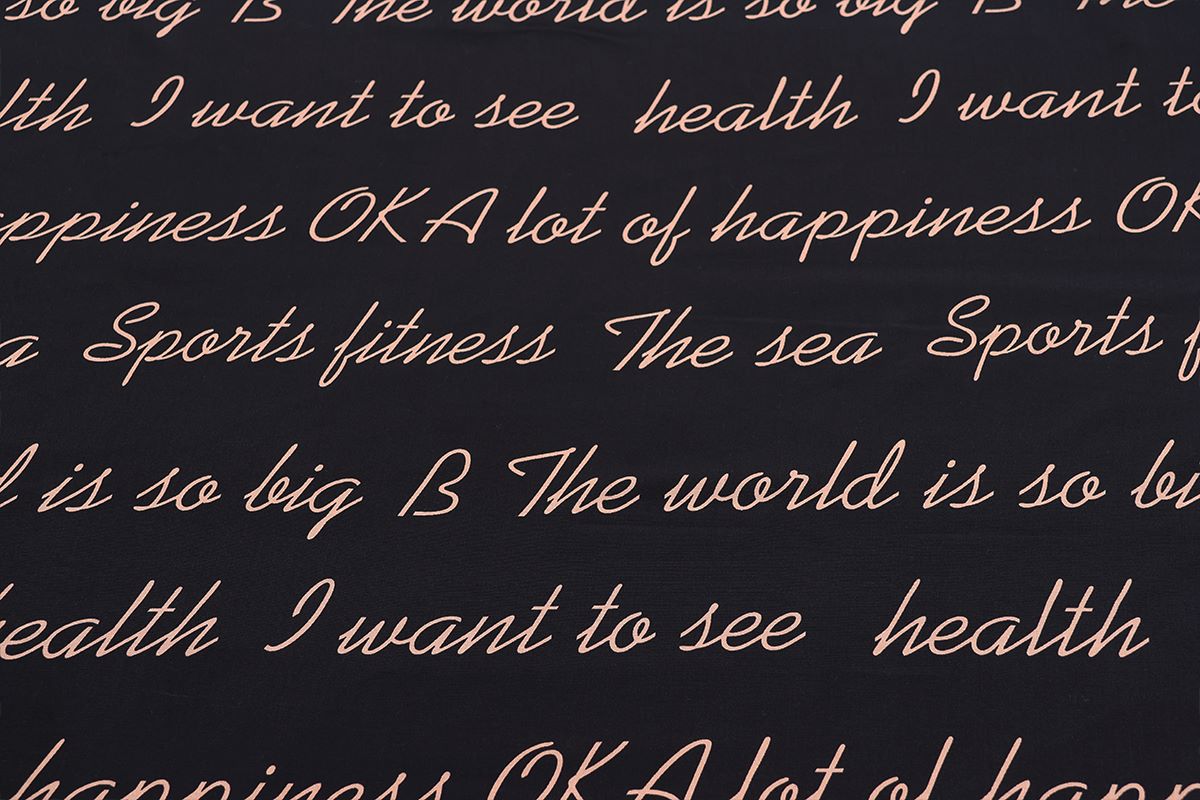 so big B The world is so big B The
lth I want to see health I want to
ppiness OK A lot of happiness OK
a Sports fitness The sea Sports f
d is so big B The world is so bi
health I want to see health
happiness OK A lot of happ